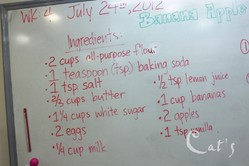 WK. 4 July 24th, 2012
Banana Apple
Ingredients:
• 2 cups all-purpose flour
• 1 teaspoon (tsp) baking soda
• 1 tsp salt
• 2/3 cups butter
• 1 1/4 cups white sugar
• 2 eggs
• 1/4 cup milk
• 1/2 tsp lemon juice
• 1 cup bananas
• 2 apples
• 1 tsp vanilla
Cat's